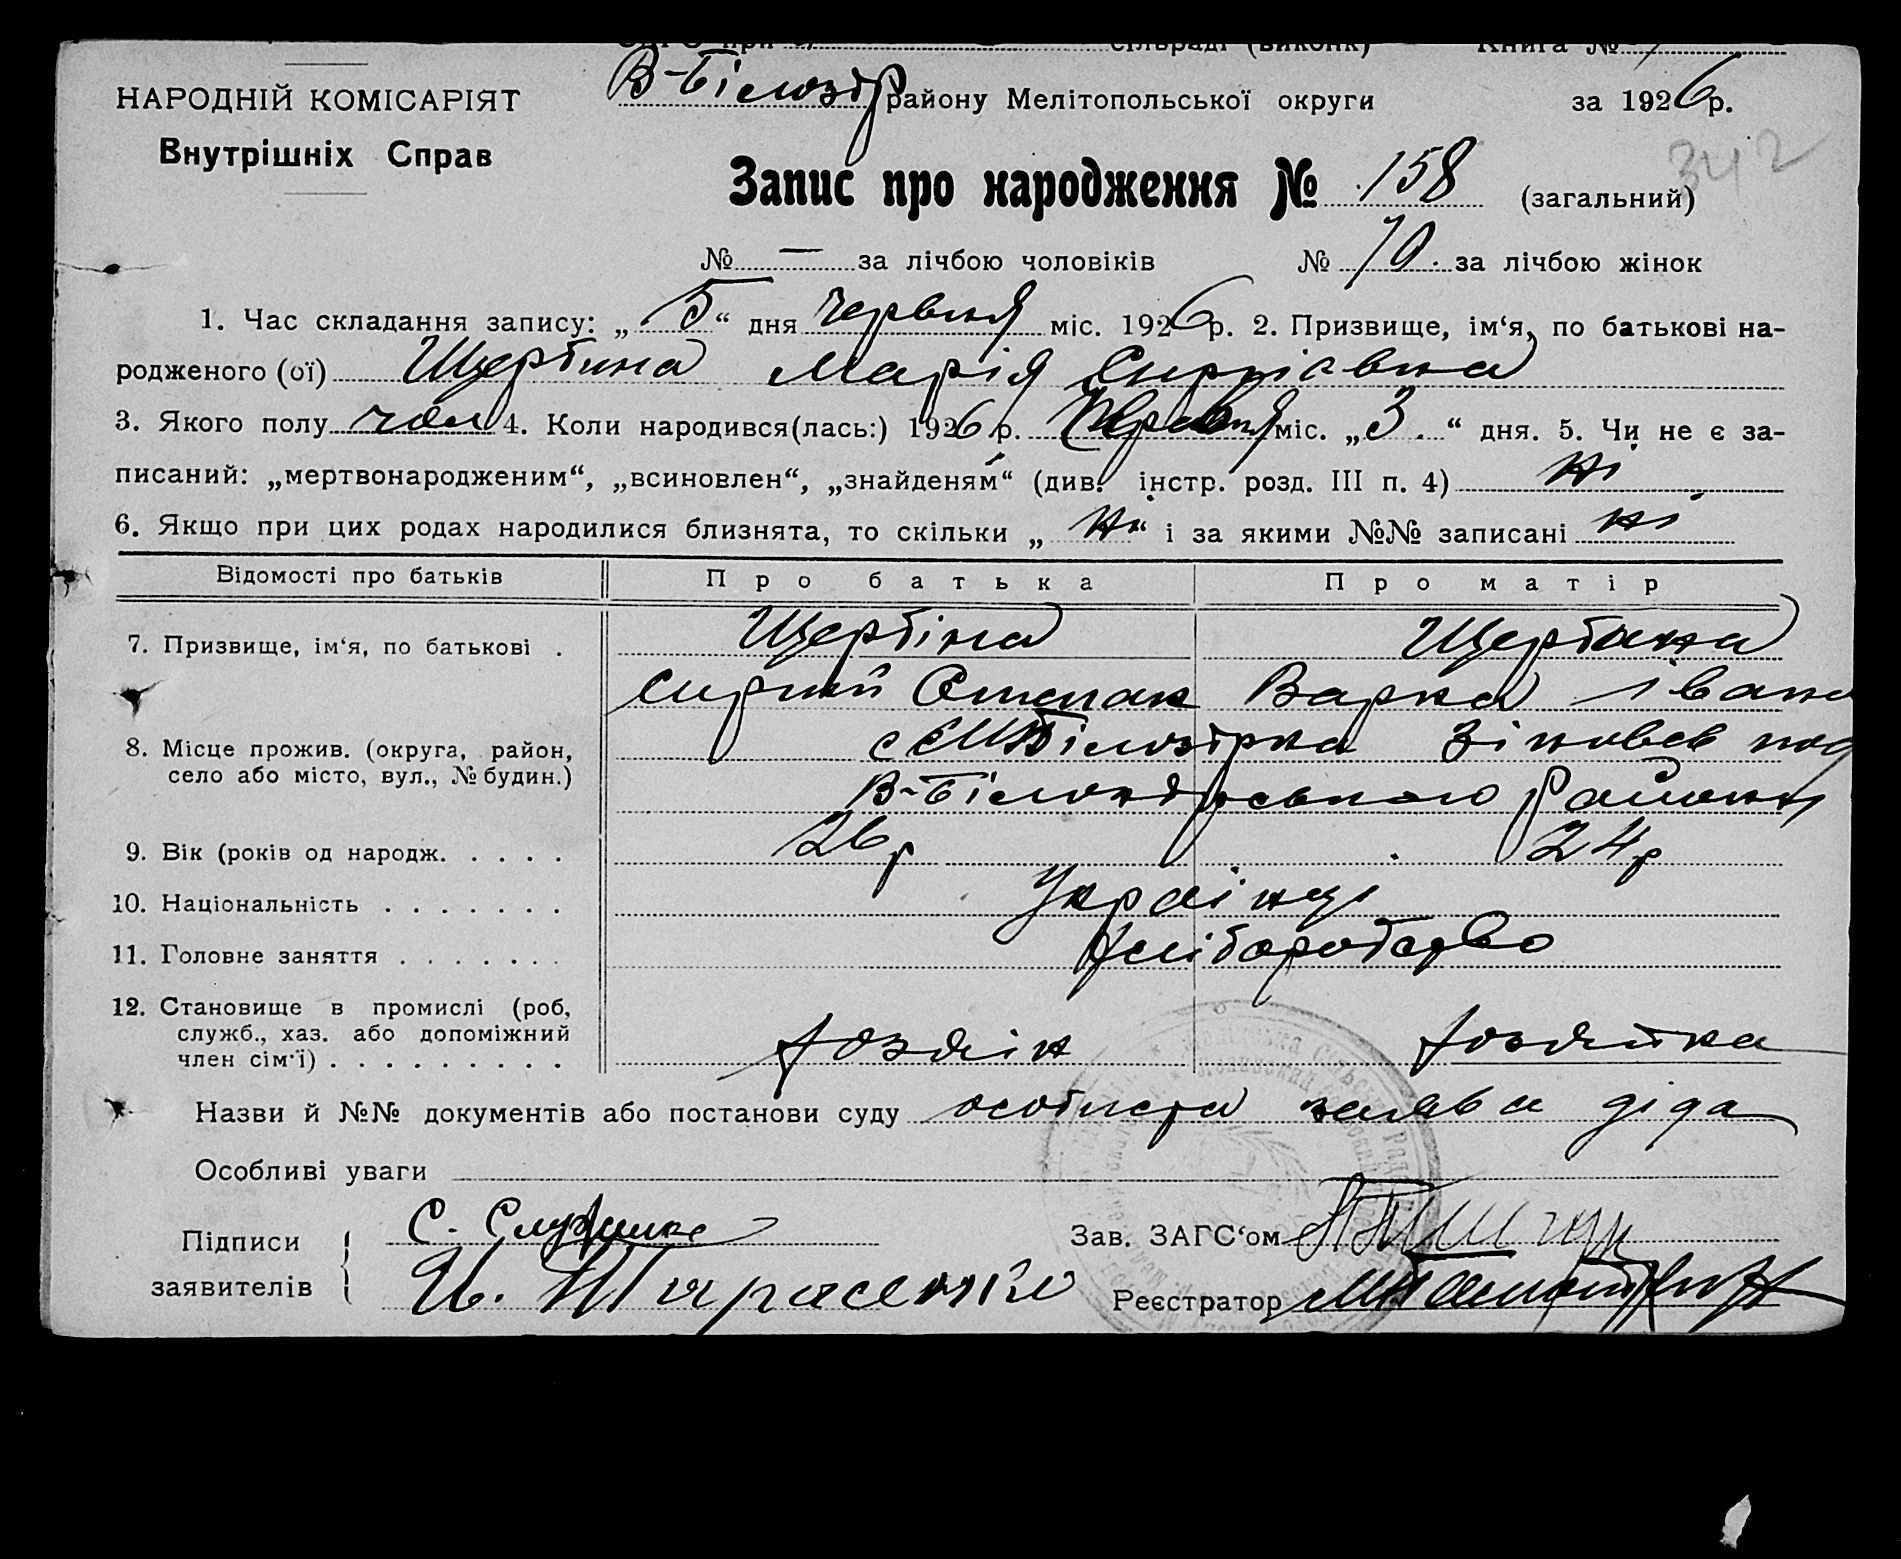 сільраді (виконк) Книга №
НАРОДНІЙ КОМІСАРІЯТ
Внутрішніх Справ
В-Білозір району Мелітопольської округи за 1926 р.
342
Запис про народження № 158 (загальний)
№ — за лічбою чоловіків № 70. за лічбою жінок
1. Час складання запису: „ 5 “ дня червня міс. 1926 р. 2. Призвище, ім‘я, по батькові на-
родженого (ої) Щербина Марія Сиргіівна
3. Якого полу чол 4. Коли народився(лась:) 1926 р. Червня міс. „ 3 “ дня. 5. Чи не є за-
писаний: „мертвонародженим“, „всиновлен“, „знайденям“ (див. інстр. розд. III п. 4) ні
6. Якщо при цих родах народилися близнята, то скільки „ ні “ і за якими №№ записані ні
Відомості про батьків Про батька Про матір
7. Призвище, ім‘я, по батькові . Щербіна Щербина
Сиргій Варка Івано
8. Місце прожив. (округа, район,
село або місто, вул., № будин.)
Білозірка
В-Білозірського Району
9. Вік (років од народж. . . . . 26 р 24 р
10. Національність . . . . . . . Українці
11. Головне заняття . . . . . . . Хліборобство
12. Становище в промислі (роб,
служб., хаз. або допоміжний
член сім‘ї) . . . . . . . . . Хозяїн Хозяйка
Назви й №№ документів або постанови суду особиста заява діда
Особливі уваги
Підписи
заявителів
С.
И. Тарасенко
Зав. ЗАГС‘ом
Реєстратор